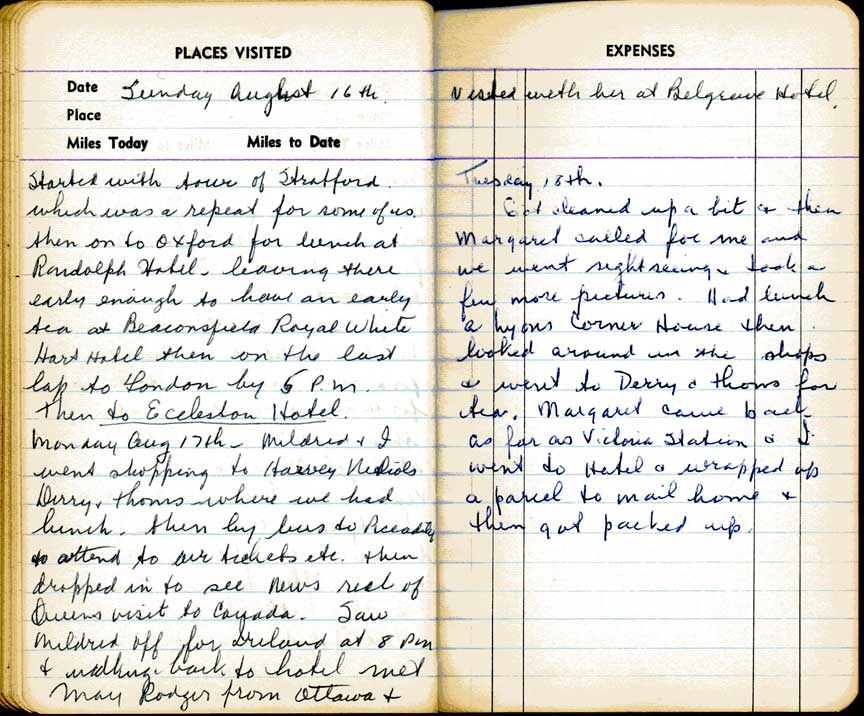 PLACES VISITED
Date Sunday August 16th.
Place
Miles Today Miles to Date
Started with tour of Stratford.
which was a repeat for some of us.
then on to Oxford for lunch at
Randolph Hotel - leaving there
early enough to have an early
tea at Beaconsfield Royal White
Hart Hotel then on the last
lap to London by 5 P.m.
Then to Eccleston Hotel.
Monday Aug 17th - Mildred & I
went shopping to Harvey Nichols
Derry & Thoms where we had
lunch. then by bus to Piccadilly
to attend to air tickets etc. then
dropped in to see News reel of
Queens visit to Canada. Saw
Mildred off for Ireland at 8 Pm
& walking back to hotel met
May Rodger from Ottawa &
EXPENSES
Visited with her at Belgrave Hotel.
Tuesday, 18th.
Got cleaned up a bit & then
Margaret called for me and
we went sightseeing & took a
few more pictures. Had lunch
a Lyons Corner House then
looked around in the shops
& went to Derry & Thoms for
tea. Margaret came back
as far as Victoria Station & I
went to Hotel & wrapped up
a parcel to mail home &
then got packed up.